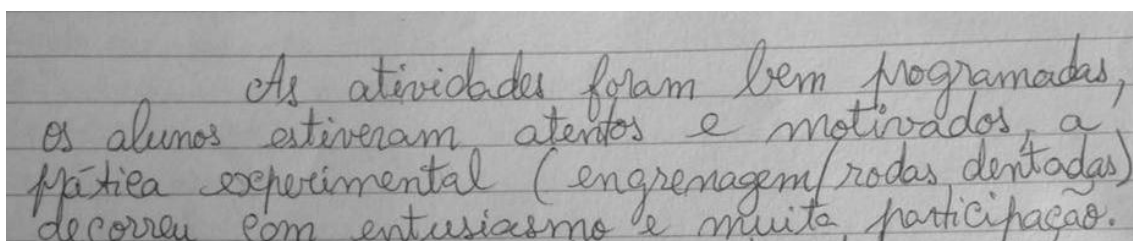 As atividades foram bem programadas,
os alunos estiveram atentos e motivados, a
prática experimental (engrenagem/rodas dentadas)
decorreu com entusiasmo e muita participação.